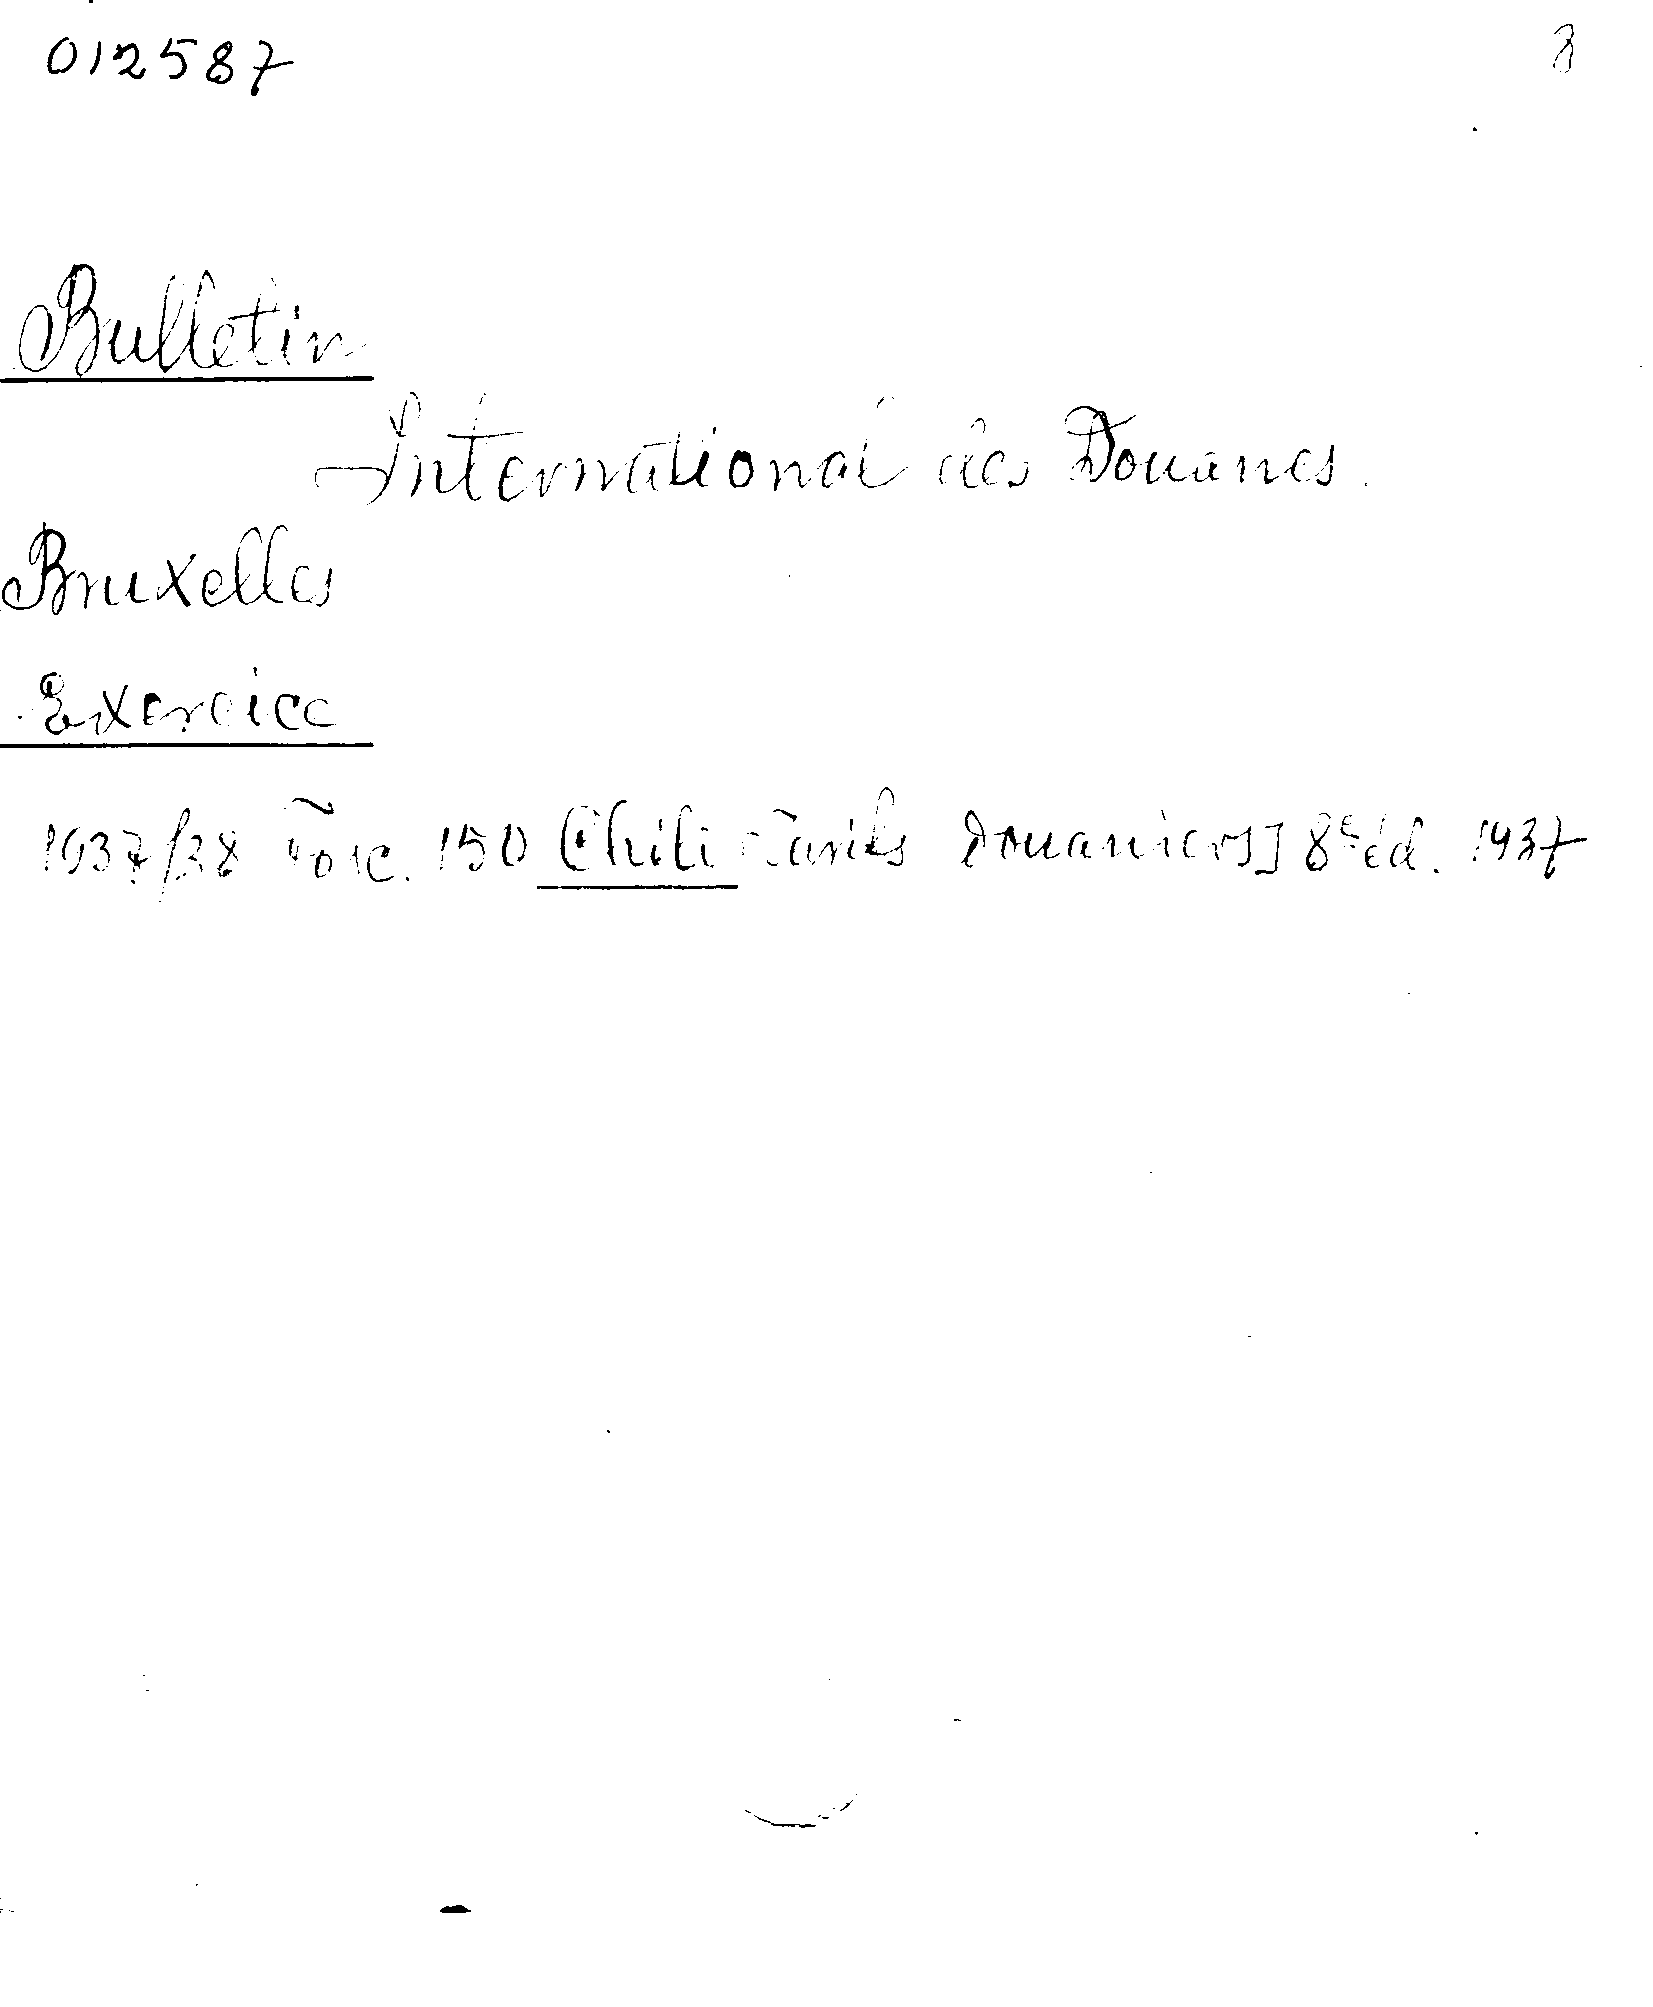 012587 8
Bulletin
International des Douanes.
Bruxelles
Exercice
1937/38 Fasc. 150 Chili [Tarifs Douaniers] 8e éd. 1937